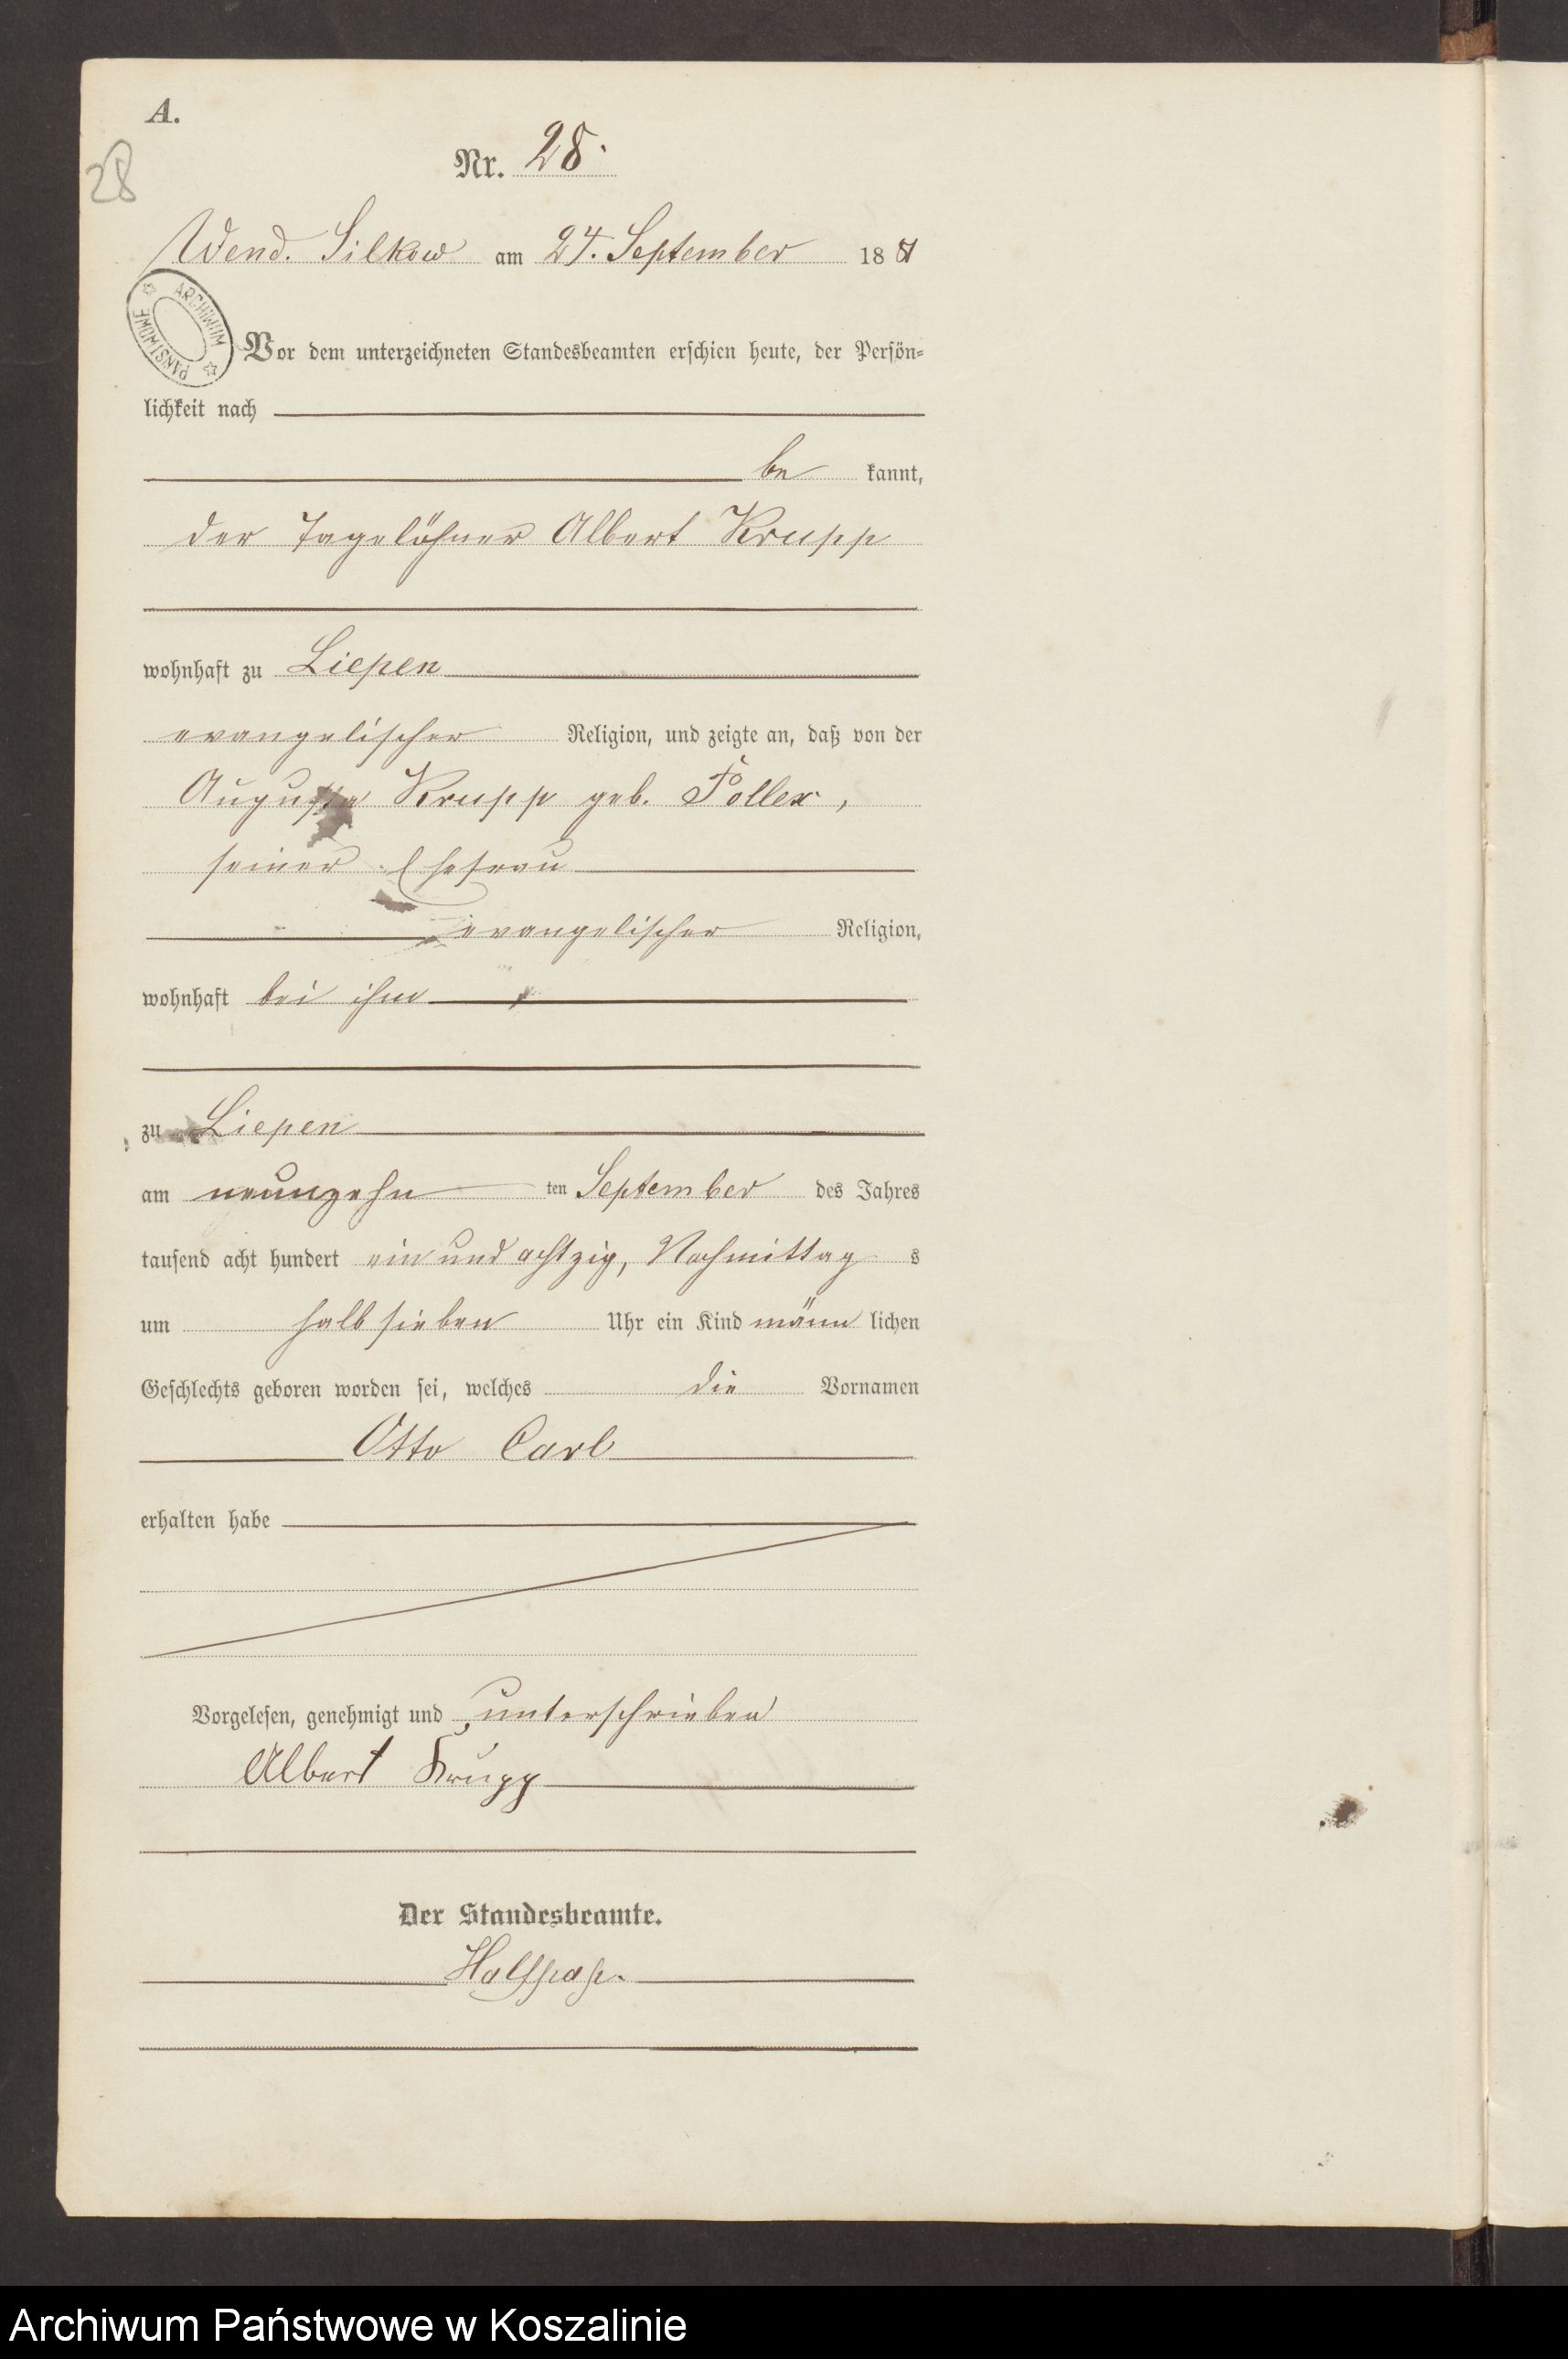 A.
28
Nr. 28.
Wend. Silkow am 24. September 1881
ARCHIWUM PAŃSTWOWE
Vor dem unterzeichneten Standesbeamten erschien heute, der Persön-
lichkeit nach
be kannt,
der Tagelöhner Albert Krupp
wohnhaft zu Liepen
evangelischer Religion, und zeigte an, daß von der
Auguste Krupp geb.
seiner Ehefrau
evangelischer Religion,
wohnhaft bei ihm
zu Liepen
am neunzehn ten September des Jahres
tausend acht hundert ein und achtzig, Nachmittag s
um halb sieben Uhr ein Kind männ lichen
Geschlechts geboren worden sei, welches die Vornamen
Otto Carl
erhalten habe
Vorgelesen, genehmigt und unterschrieben
Albert Krupp
Der Standesbeamte.
Archiwum Państwowe w Koszalinie